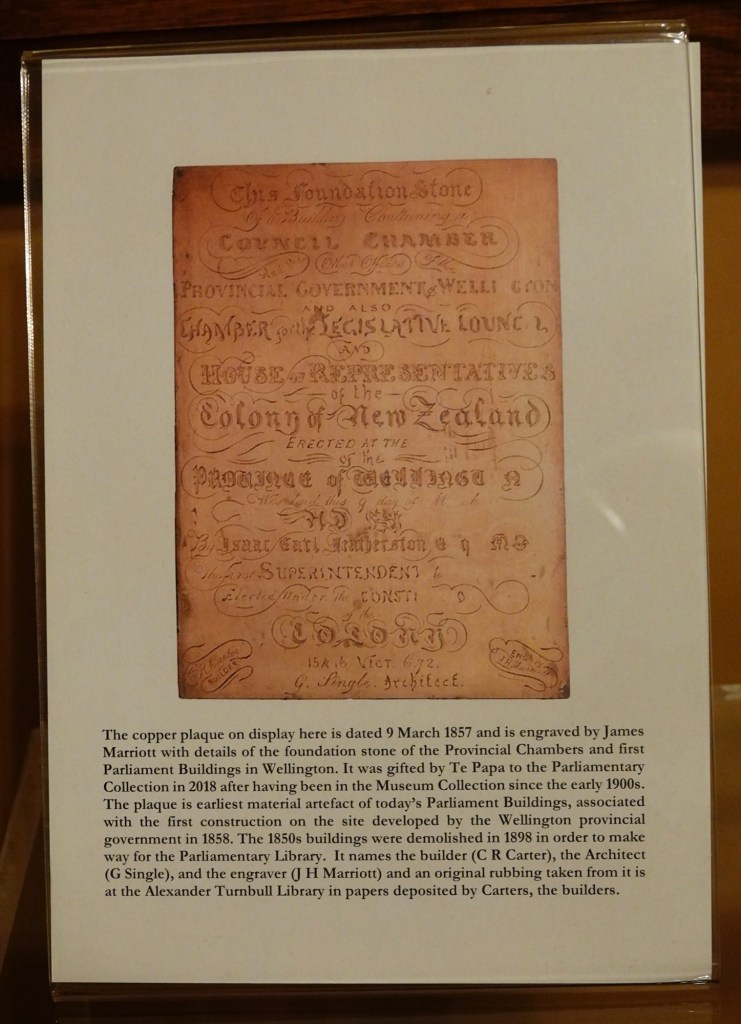 This Foundation Stone
Of a Building Containing a
COUNCIL CHAMBER
And Other Offices For
PROVINCIAL GOVERNMENT of WELLI GTON
AND ALSO
CHAMBER for the LEGISLATIVE COUNCIL
AND
HOUSE of REPRESENTATIVES
of the
Colony of New Zealand
ERECTED AT THE
of the
PROVINCE of WELLINGTON
this 9 day of
AD
By Isaac Earl Featherston Esq MD
The First SUPERINTENDENT
Elected Under the CONSTI
of the
COLONY
BUILDER
15 & 16 VICT. C 72.
G. Single. Architect.
The copper plaque on display here is dated 9 March 1857 and is engraved by James
Marriott with details of the foundation stone of the Provincial Chambers and first
Parliament Buildings in Wellington. It was gifted by Te Papa to the Parliamentary
Collection in 2018 after having been in the Museum Collection since the early 1900s.
The plaque is earliest material artefact of today's Parliament Buildings, associated
with the first construction on the site developed by the Wellington provincial
government in 1858. The 1850s buildings were demolished in 1898 in order to make
way for the Parliamentary Library. It names the builder (C R Carter), the Architect
(G Single), and the engraver (J H Marriott) and an original rubbing taken from it is
at the Alexander Turnbull Library in papers deposited by Carters, the builders.